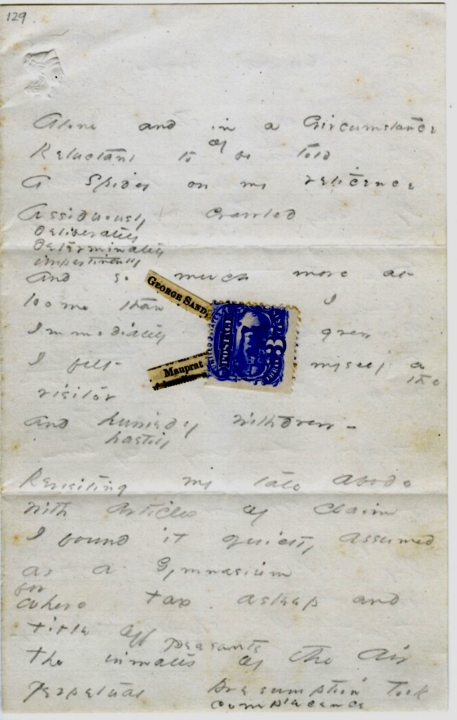 129
Alone and in a Circumstance
Reluctant to be told
of
A Spider on my reticence
Assiduously crawled
deliberately
determinately
impertinently
And so much more at
Home than I
Immediately grew
I felt myself a
the
visitor
And hurriedly withdrew -
hastily
GEORGE SAND
Mauprat
POSTAGE
3
Revisiting my late abode
With articles of claim
I found it quietly assumed
as a Gymnasium
for
where tax asleep and
title off
peasants
The inmates of the Air
Perpetual presumption took
complacence